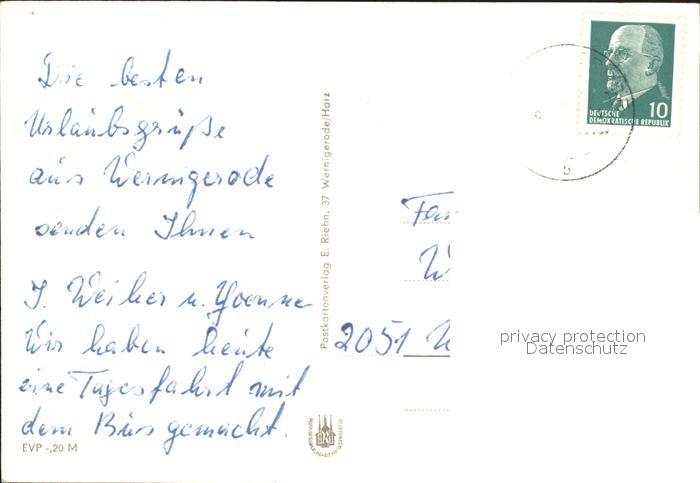 Die besten
Urlaubsgrüße
aus Wernigerode
senden Ihnen
J. Weiher u. Yvonne
Wir haben heute
eine Tagesfahrt mit
dem Bus gemacht.
EVP -,20 M
Postkartenverlag E. Riehn, 37 Wernigerode/Harz
DEUTSCHE
DEMOKRATISCHE REPUBLIK
10
b
Fam
W
2051
privacy protection
Datenschutz